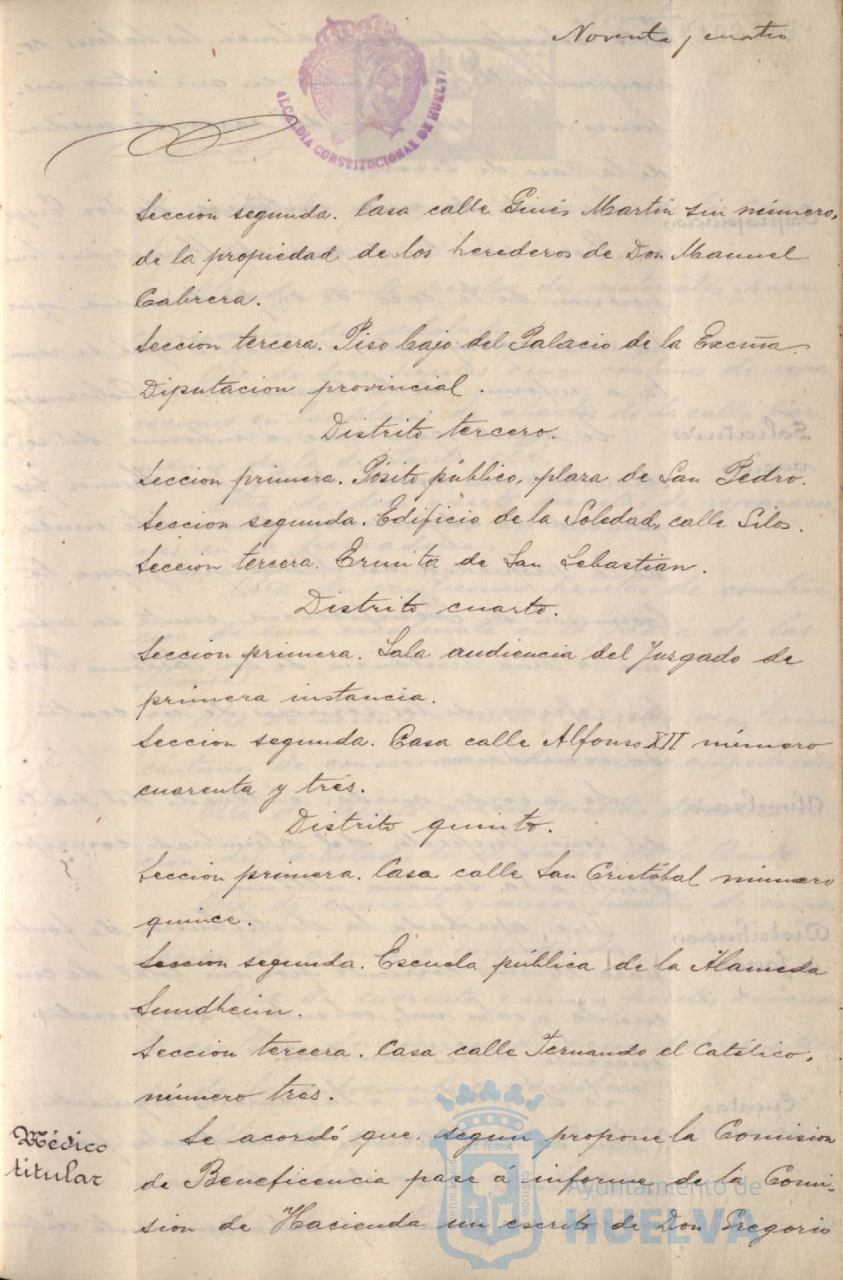 Noventa y cuatro
ALCALDIA CONSTITUCIONAL DE HUELVA
Seccion segunda. Casa calle Ginés Martin sin número,
de la propiedad de los herederos de Don Manuel
Cabrera.
Seccion tercera. Piso bajo del Palacio de la Excma.
Diputacion provincial.
Distrito tercero.
Seccion primera. Pósito público, plaza de San Pedro.
Seccion segunda. Edificio de la Soledad, calle Silos.
Seccion tercera. Ermita de San Sebastián.
Distrito cuarto.
Seccion primera. Sala audiencia del Juzgado de
primera instancia.
Seccion segunda. Casa calle Alfonso XII número
cuarenta y trés.
Distrito quinto.
Seccion primera. Casa calle San Cristóbal número
quince.
Seccion segunda. Escuela pública de la Alameda
Sundheim.
Seccion tercera. Casa calle Fernando el Católico,
número trés.
Médico
titular
Se acordó que segun propone la Comision
de Beneficencia pase á informe de la Comi-
sion de Hacienda un escrito de Don Gregorio
Ayuntamiento de
HUELVA